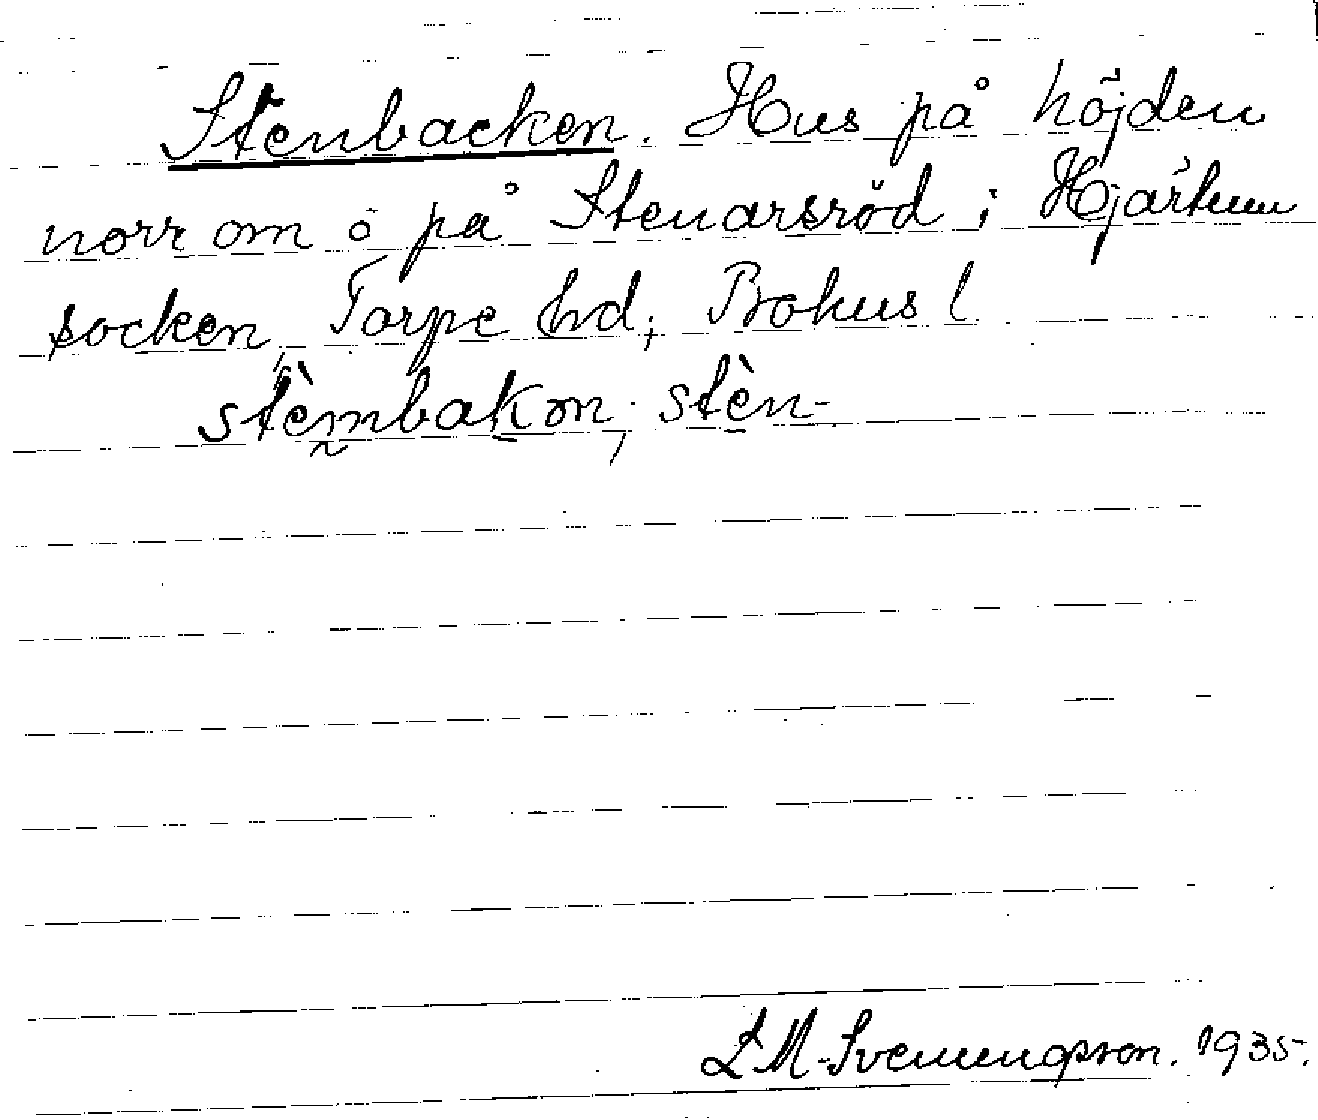 Stenbacken. Hus på höjden
norr om o på Stenarsröd i Hjärtum
socken, Torpe hd, Bohus l
stèmbakɔn; stèn-
L M. Svenungsson. 1935.